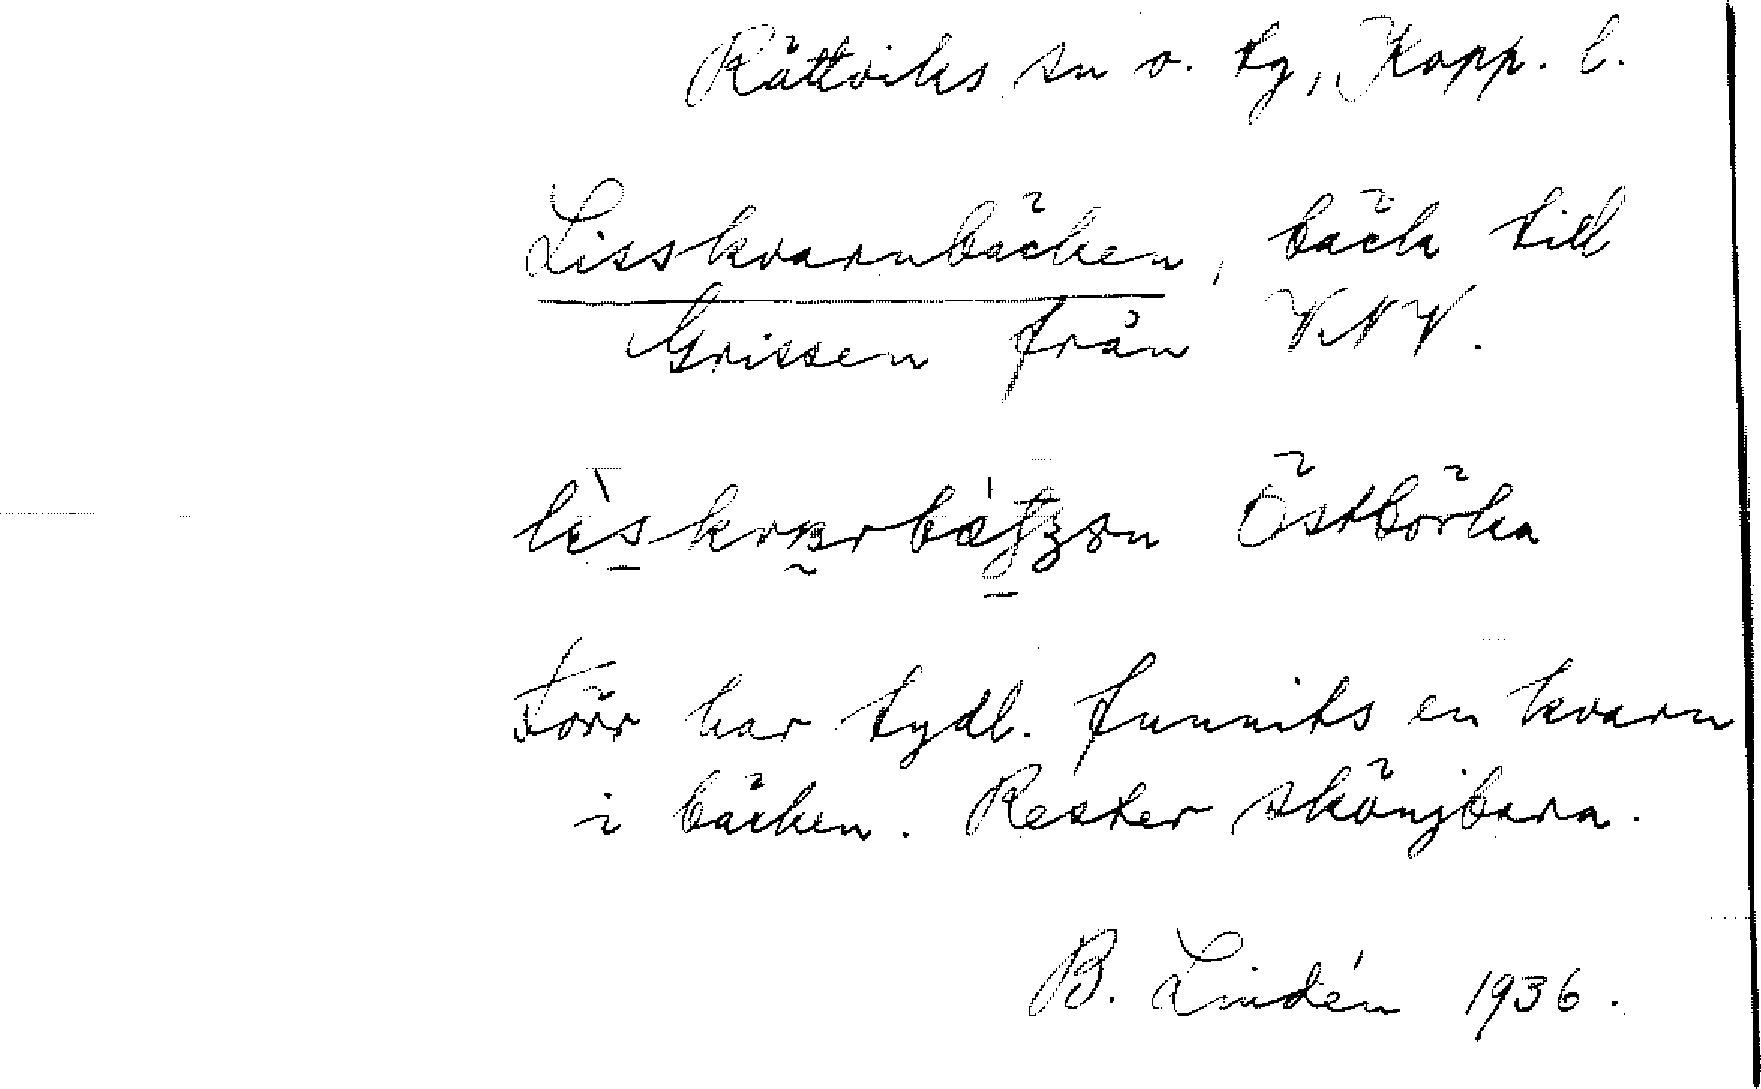 Rättviks sn o. tg, Kopp. l.
Lisskvarnbäcken, bäck till
Grissen från VNV.
Östbörka
Förr har tydl. funnits en kvarn
i bäcken. Rester skönjbara.
B. Lindén 1936.